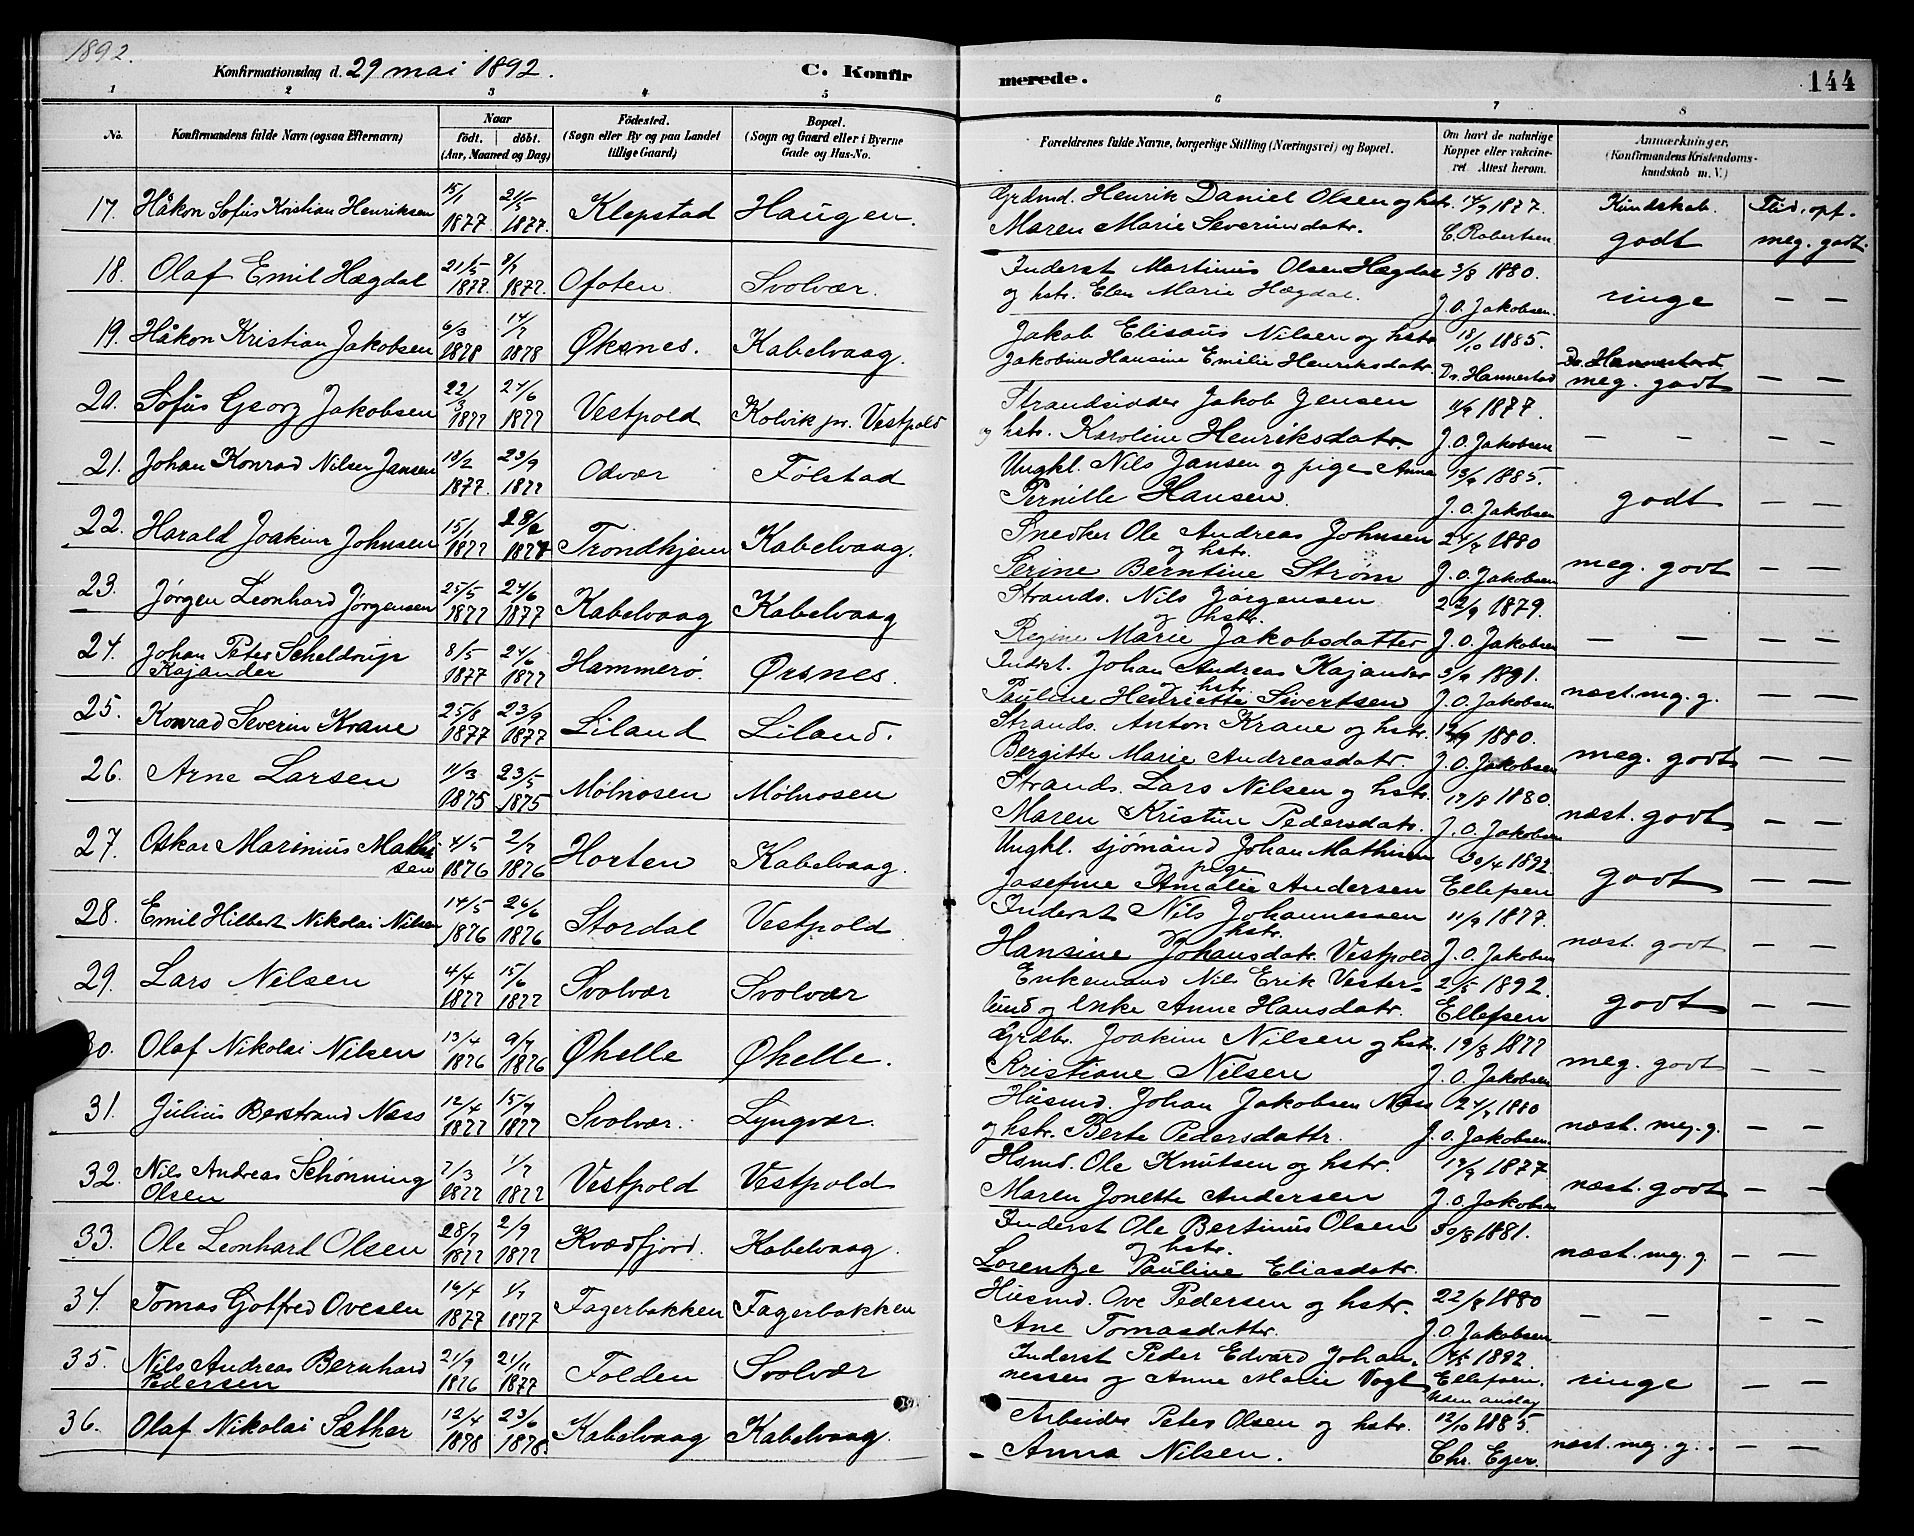 1892.
Konfirmationsdag d. 29 mai 1892. C. Konfirmerede. 144
1 2 3 4 5 6 7 8
No. Konfirmandens fulde Navn (ogsaa Efternavn) Naar født. døbt. (Aar, Maaned og Dag) Fødested. (Sogn eller By og paa Landet tillige Gaard) Bopæl. (Sogn og Gaard eller i Byerne Gade og Hus-No. Forældrenes fulde Navne, borgerlige Stilling (Næringsvei) og Bopæl. Om havt de naturlige Kopper eller vakcineret Attest herom. Anmærkninger. (Konfirmandens Kristendomskundskab m. V.)
17. Håkon Sofus Kristian Henriksen 15/1 1877 21/5 1877. Klepstad Haugen. Grdmd. Henrik Daniel Olsen og hstr. 14/9 1877. Kundskab. Flid. opf.
Maren Marie Severinsdatr. C. Robertsen godt meg. godt.
18. Olaf Emil Hægdal 21/5 1877. 8/7 1877. Ofoten. Svolvær. Inderst Martinus Olsen Hægdal 3/8 1880.
og hstr. Elen Marie Hægdal. J. O. Jakobsen. ringe — —
19. Håkon Kristian Jakobsen 6/3 1878 14/7 1878 Øksnes. Kabelvaag. Jakob Elisæus Nilsen og hstr 18/10 1885.
Jakobine Hansine Emilie Henriksdatr. Dr. Hannestad Dr. Hannestad meg. godt — —
20. Sofus Georg Jakobsen 22/3 1877 24/6 1877 Vestpold Kolvik pr. Vestpold Strandsidder Jakob Jensen 11/9 1877.
og hstr. Karoline Henriksdatr. J. O. Jakobsen — — — — —
21. Johan Konrad Nilsen Jansen 18/2 1877. 23/9 1877 Odvær Følstad Ungkl. Nils Jansen og pige Anna 13/9 1885.
Pernille Hansen. J. O. Jakobsen godt — —
22. Harald Joakim Johnsen 15/1 1877 28/2 1877 Trondhjem Kabelvaag. Snedker Ole Andreas Johnsen 24/7 1880
og hstr. Serine Berntine Strøm J. O. Jakobsen meg. godt — —
23. Jørgen Leonhard Jørgensen 25/5 1877 24/6 1877 Kabelvaag Kabelvaag Strands. Nils Jørgensen 22/9 1879.
og hstr. Regine Marie Jakobsdatter J. O. Jakobsen — — — — —
24. Johan Peter Scheldrup Kajander 8/5 1877 24/6 1877 Hammerø. Ørsnes. Inderst. Johan Andreas Kajander 5/9 1891.
og hstr. Pauline Henriette Sivertsen J. O. Jakobsen næst. meg. g. — —
25. Konrad Severin Krane 25/8 1877 23/9 1877 Liland Liland. Strands. Anton Krane og hstr. 12/9 1880.
Bergitte Marie Andreasdatr. J. O. Jakobsen meg. godt — —
26. Arne Larsen 11/3 1875 23/5 1875 Mølnosen Mølnosen Strands. Lars Nilsen og hstr. 17/8 1880.
Maren Kristine Pedersdatr. J. O. Jakobsen næst. godt — —
27. Oskar Marinius Mathisen 4/5 1876 2/7 1876 Horten Kabelvaag. Ungkl. sjømand Johan Mathisen 30/4 1892.
og pige Josefine Amalie Andersen Ellefsen godt — —
28. Emil Hilbert Nikolai Nilsen 14/5 1876 26/6 1876 Stordal Vestpold. Inderst Nils Johannessen 11/9 1877.
og hstr. Hansine Johansdatr. Vestpold J. O. Jakobsen næst. godt — —
29. Lars Nilsen 4/4 1877 15/6 1877 Svolvær Svolvær Enkemand Nils Erik Vester- 2/5 1892.
lund og enke Anne Hansdatr. Ellefsen godt — —
30. Olaf Nikolai Nilsen 13/4 1876 9/7 1876 Øhelle Øhelle. Grdbr. Joakim Nilsen og hstr. 19/8 1877
Kristiane Nilsen J. O. Jakobsen meg. godt — —
31. Julius Berstrand Næss 12/4 1877 15/7 1877 Svolvær. Lyngvær. Husmd. Johan Jakobsen Næss 24/7 1880
og hstr. Berte Pedersdattr. J. O. Jakobsen. næst. meg. g. — —
32. Nils Andreas Schønning Olsen 7/3 1877 1/7 1877 Vestpold Vestpold Hsmd. Ole Knutsen og hstr. 17/9 1877
Maren Jonette Andersen J. O. Jakobsen næst. godt — —
33. Ole Leonhart Olsen 28/7 1877 2/9 1877 Kvædfjord. Kabelvaag. Inderst Ole Bertinus Olsen 30/8 1881.
og hstr. Lorentze Pauline Eliasdatr. næst. meg. g. — —
34. Tomas Gotfred Ovesen 16/4 1877 1/7 1877 Fagerbakken Fagerbakken Husmd. Ove Pedersen og hstr. 22/8 1880
Ane Tomasdatter. J. O. Jakobsen — — — —
35. Nils Andreas Bernhard Pedersen 21/9 1876 21/11 1877 Folden Svolvær Inderst Peder Edvard Johan- 14/5 1892.
nessen og Anne Marie Vogt Ellefsen. ringe — —
36. Olaf Nikolai Sæther 12/4 1878 23/6 1878. Kabelvaag Kabelvaag. Arbeider Peter Olsen og hstr. 12/10 1885.
Anna Nilsen. Chr. Eger. næst. meg. g. — —